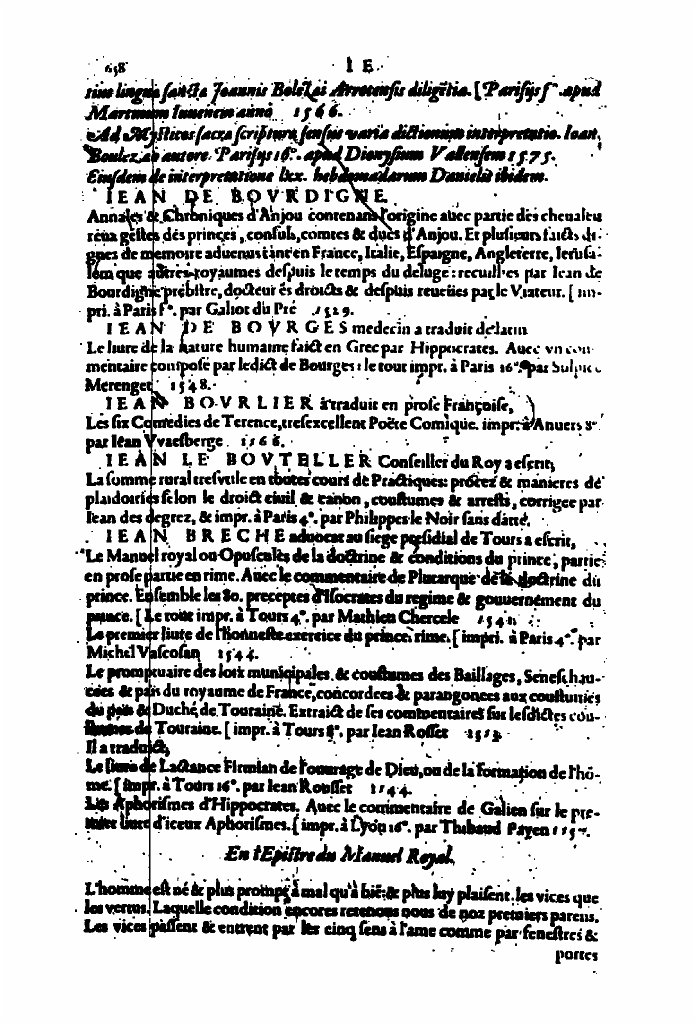 658 I E
siue lingua sancta Ioannis Bolezai Atrotensis diligētia. [Parisijs f°. apud
Martinum Iuuenem anno 1566.
Ad Mysticos sacræ scripturæ sensus varia dictionum interpretatio. Ioan.
Boulez, autore. Parisijs 16°. apud Dionysium Vallensem 1575.
Eiusdem de interpretatione lxx. hebdomadarum Danielis ibidem.
IEAN DE BOVRDIGNE.
Annales & Chroniques d'Anjou contenans l'origine auec partie des cheualeu
reux gestes des princes, consuls, comtes & ducs d'Anjou. Et plusieurs faicts di-
gnes de memoire aduenus tāt en France, Italie, Espaigne, Angleterre, Ierusa-
lem que autres royaumes despuis le temps du deluge: recuillies par Iean de
Bourdigne prebstre, docteur és droicts & despuis reueües par le Viateur. [ im-
pri. à Paris f°. par Galiot du Pré 1529.
IEAN DE BOVRGES medecin a traduit de latin
Le liure de la nature humaine faict en Grec par Hippocrates. Auec vn com-
mentaire composé par ledict de Bourges: le tout impr. à Paris 16°. par Sulpice
Merenget 1548.
IEAN BOVRLIER a traduit en prose Françoise,
Les six Comedies de Terence, tresexcellent Poëte Comique. impr. à Anuers 8°
par Iean Vvaesberge 1566.
IEAN LE BOVTELLER Conseiller du Roy a escrit,
La summe rural tresvtile en toutes cours de Practiques: procez & manieres de
plaidoiries selon le droict ciuil & canon, coustumes & arrests, corrigee par
Iean des degrez, & impr. à Paris 4°. par Philippes le Noir sans datte.
IEAN BRECHE aduocat au siege presidial de Tours a escrit,
Le Manuel royal ou Opuscules de la doctrine & conditions du prince, partie
en prose partie en rime. Auec le commentaire de Plutarque de la doctrine du
prince. Ensemble les 80. preceptes d'Isocrates du regime & gouuernement du
prince. [ Le tout impr. à Tours 4°. par Mathieu Chercele 1541.
Le premier liure de l'honneste exercice du prince. rime. [ impri. à Paris 4°. par
Michel Vascosan 1544.
Le promptuaire des loix municipales & coustumes des Bailliages, Seneschau-
cées & païs du royaume de France, concordees & parangonees aux coustumes
du païs & Duché de Touraine. Extraict de ses commentaires sur lesdictes cou-
stumes de Touraine. [ impr. à Tours 8°. par Iean Rosset
Il a traduict,
Le liure de Lactance Firmian de l'ouurage de Dieu, ou de la formation de l'hō-
me. [ impr. à Tours 16°. par Iean Rousset 1544.
Les Aphorismes d'Hippocrates. Auec le commentaire de Galien sur le pre-
mier liure d'iceux Aphorismes. [ impr. à Lyon 16°. par Thibaud Payen
En l'Epistre du Manuel Royal.
L'homme est né & plus prompt à mal qu'à biē: & plus luy plaisent les vices que
les vertus. Laquelle condition encores retenons nous de noz premiers parens.
Les vices passent & entrent par les cinq sens à l'ame comme par fenestres &
portes